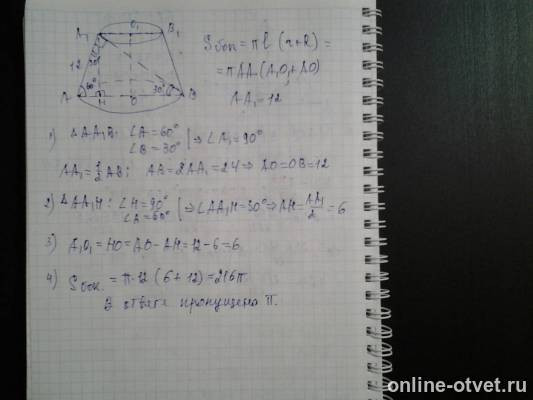 A₁ O₁ B₁
12 30°
60° 30°
A H O B
S бок = πl (r+R) =
= πAA₁(A₁O₁+AO)
AA₁ = 12
1) ΔAA₁B: ∠A = 60°
∠B = 30° | ⇒ ∠A₁ = 90°
AA₁ = ½AB; AB = 2AA₁ = 24 ⇒ AO = OB = 12
2) ΔAA₁H: ∠H = 90°
∠A = 60° | ⇒ ∠AA₁H = 30° ⇒ AH = AA₁/2 = 6
3) A₁O₁ = HO = AO - AH = 12 - 6 = 6
4) S бок. = π·12 (6 + 12) = 216π.
В ответе пропущена π.
online-otvet.ru